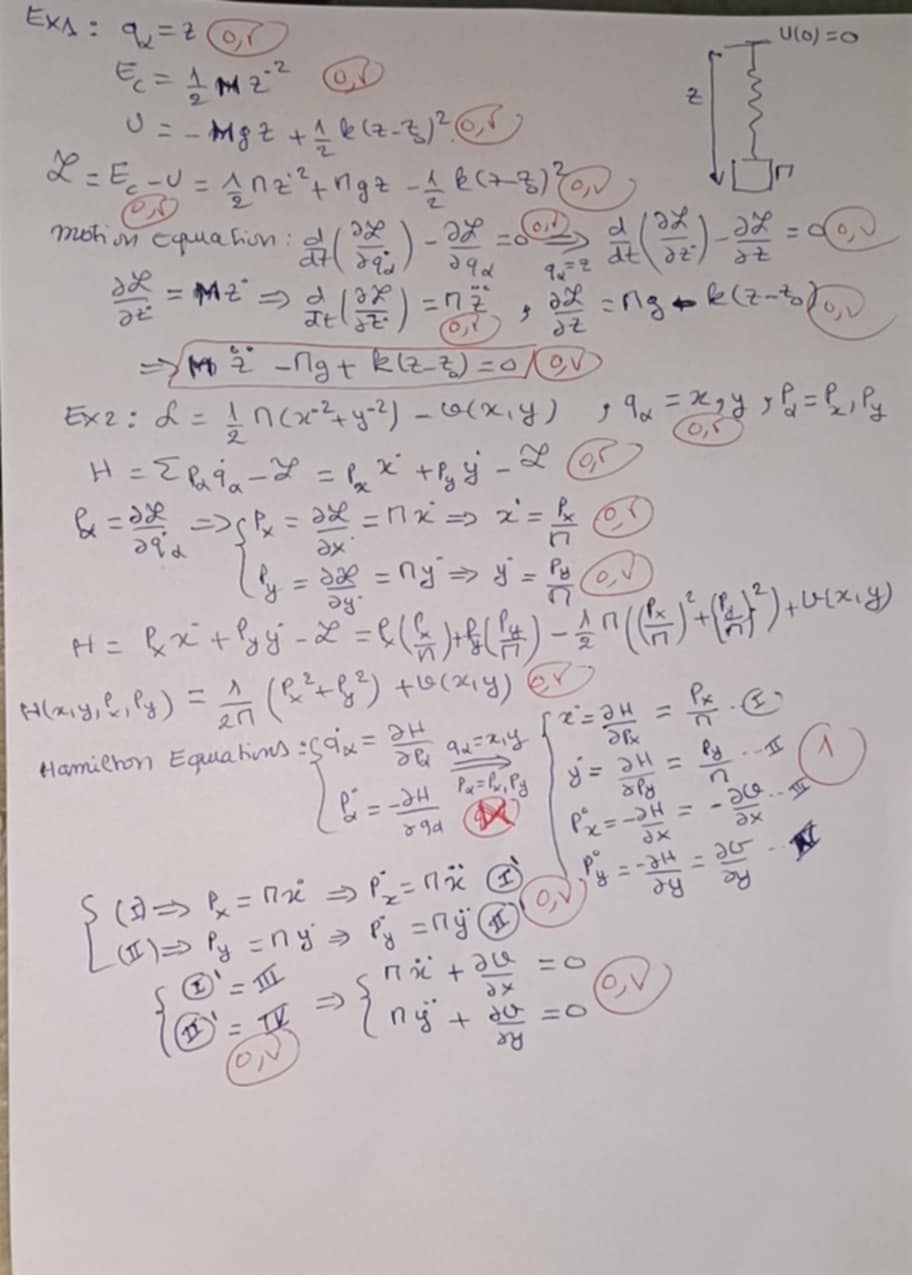 Ex1 : qα = z (0,5)
U(0)=0
Ec = 1/2 M ż² (0,5)
z
U = -Mgz + 1/2 k(z-z₀)² (0,5)
M
ℒ = Ec - U = 1/2 Mż² + Mgz - 1/2 k(z-z₀)² (0,5)
(0,5)
motion Equation : d/dt(∂ℒ/∂q̇α) - ∂ℒ/∂qα = 0 (0,5) ⟹ qα=z d/dt(∂ℒ/∂ż) - ∂ℒ/∂z = 0 (0,5)
∂ℒ/∂ż = Mż ⟹ d/dt(∂ℒ/∂ż) = Mz̈ (0,5) , ∂ℒ/∂z = Mg - k(z-z₀) (0,5)
⟹ M z̈ - Mg + k(z-z₀) = 0 (0,5)
Ex2 : ℒ = 1/2 M(ẋ²+ẏ²) - U(x,y) , qα = x, y , Pα = Px, Py
(0,5)
H = Σ Pα q̇α - ℒ = Px ẋ + Py ẏ - ℒ (0,5)
Pα = ∂ℒ/∂q̇α ⟹ { Px = ∂ℒ/∂ẋ = Mẋ ⟹ ẋ = Px/M (0,5)
Py = ∂ℒ/∂ẏ = Mẏ ⟹ ẏ = Py/M (0,5)
H = Px ẋ + Py ẏ - ℒ = Px(Px/M) + Py(Py/M) - 1/2 M((Px/M)² + (Py/M)²) + U(x,y)
H(x,y,Px,Py) = 1/2M (Px² + Py²) + U(x,y) (0,5)
Hamilton Equations : { q̇α = ∂H/∂Pα qα=x,y ⟹ Pα=Px,Py { ẋ = ∂H/∂Px = Px/M .. (I)
ẏ = ∂H/∂Py = Py/M .. II (1)
Ṗα = -∂H/∂qα
Ṗx = -∂H/∂x = -∂U/∂x .. III
Ṗy = -∂H/∂y = ∂U/∂y .. IV
{ (I) ⟹ Px = Mẋ ⟹ Ṗx = Mẍ (I)'
(II) ⟹ Py = Mẏ ⟹ Ṗy = Mÿ (II)' (0,5)
{ (I)' = III ⟹ { Mẍ + ∂U/∂x = 0 (0,5)
(II)' = IV Mÿ + ∂U/∂y = 0
(0,5)